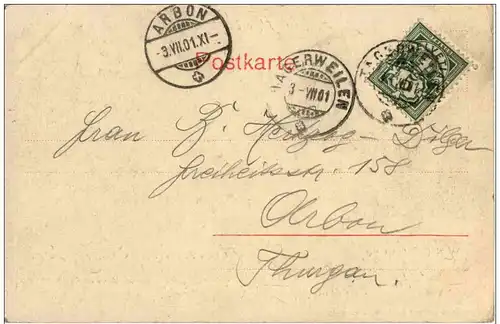 ARBON
-3.VII.01.XI-
Postkarte
TÄGERWEILEN
3-VII.01
TÄGERWEILEN
Frau B. Herzog-Dilger
Freiheitsstr. 158
Arbon
Thurgau.